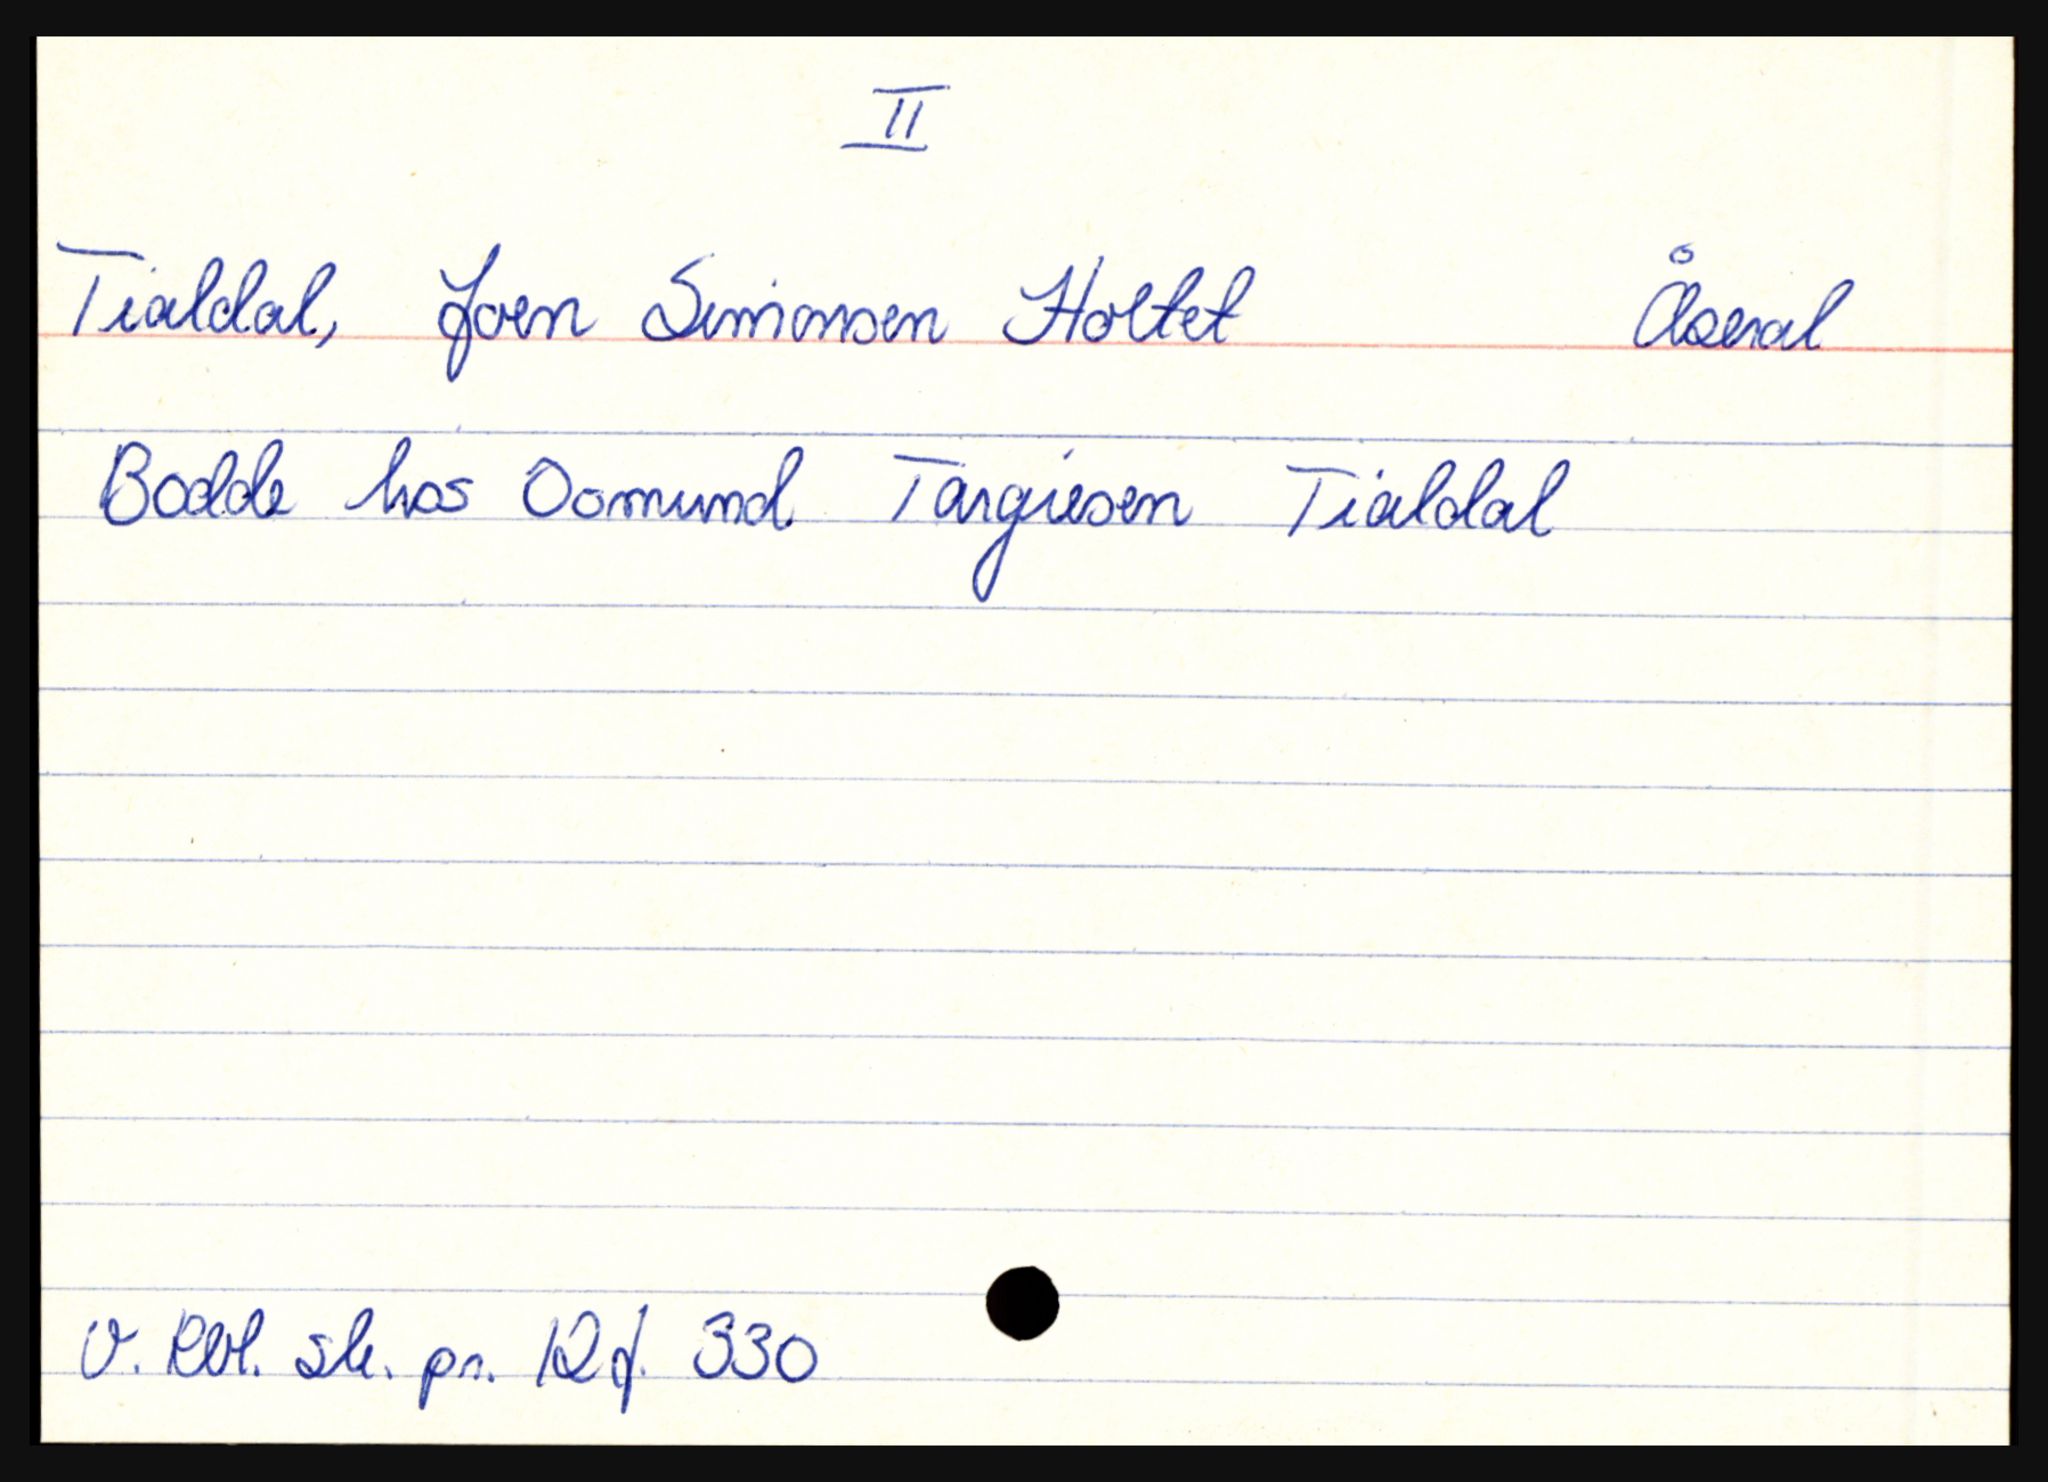 II
Tialdal, Joen Simonsen Holtet Åseral
Bodde hos Osmund Targiesen Tialdal
V. Rbl. sk. pr. 12 f. 330